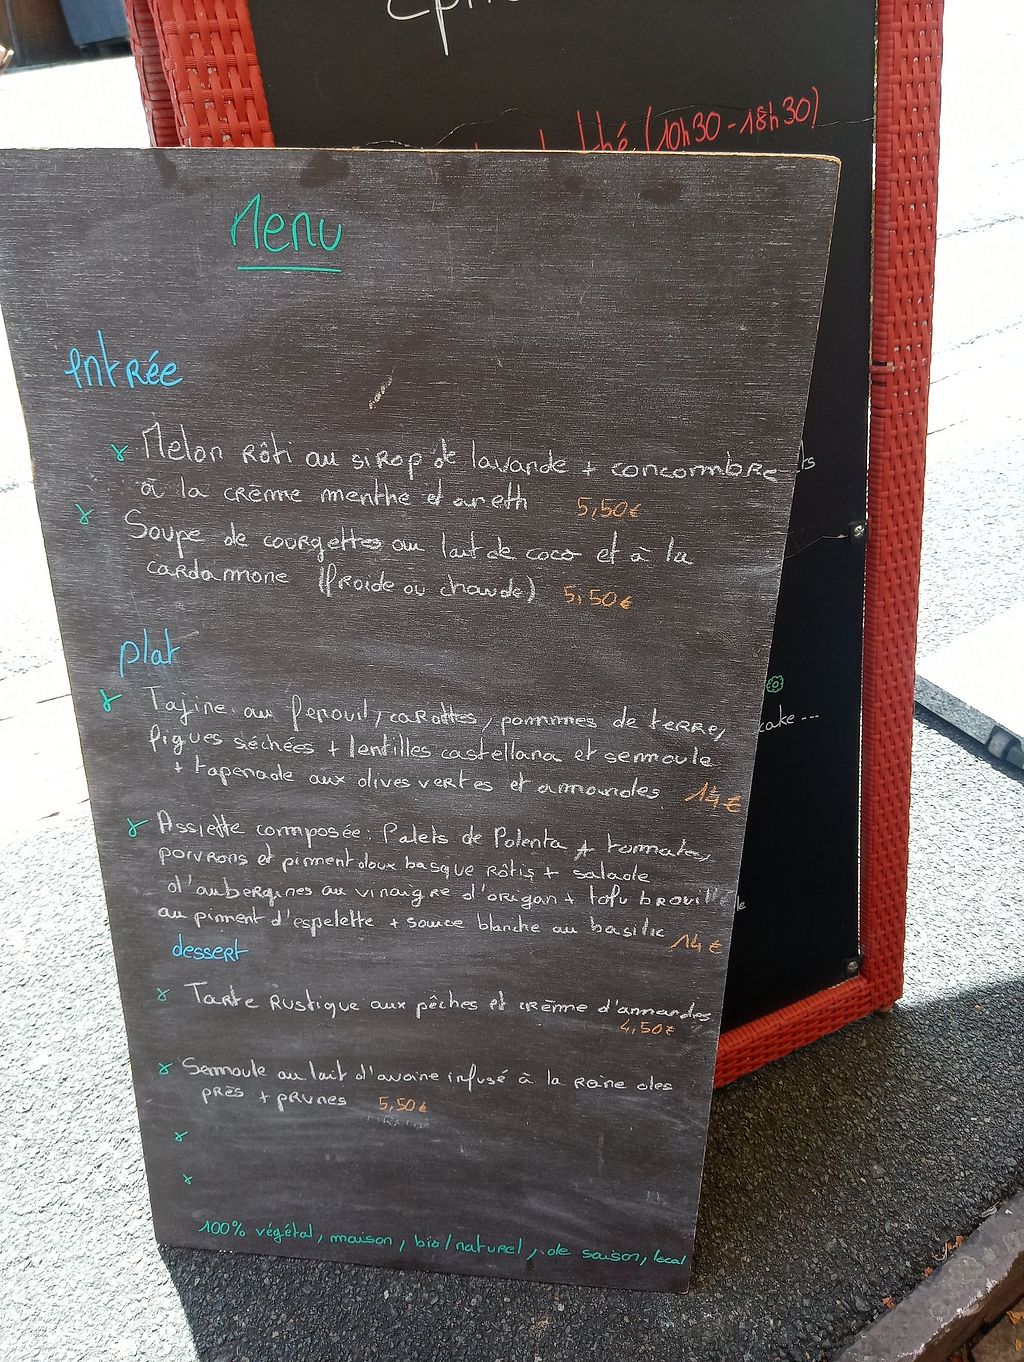 thé (10h30-18h30)
Menu
entrée
Melon rôti au sirop de lavande + concombre
à la crème menthe et aneth 5,50€
Soupe de courgettes au lait de coco et à la
cardamone (froide ou chaude) 5,50€
plat
Tajine au fenouil, carottes, pommes de terre,
figues séchées + lentilles castellana et semoule
+ tapenade aux olives vertes et amandes 14€
Assiette composée: Palets de Polenta + tomates,
poivrons et piment doux basque rôtis + salade
d'aubergines au vinaigre d'origan + tofu brouillé
au piment d'espelette + sauce blanche au basilic 14€
dessert
Tarte Rustique aux pêches et crème d'amandes
4,50€
Semoule au lait d'avoine infusé à la reine des
près + prunes 5,50€
100% végétal, maison, bio/naturel, de saison, local
cake ---